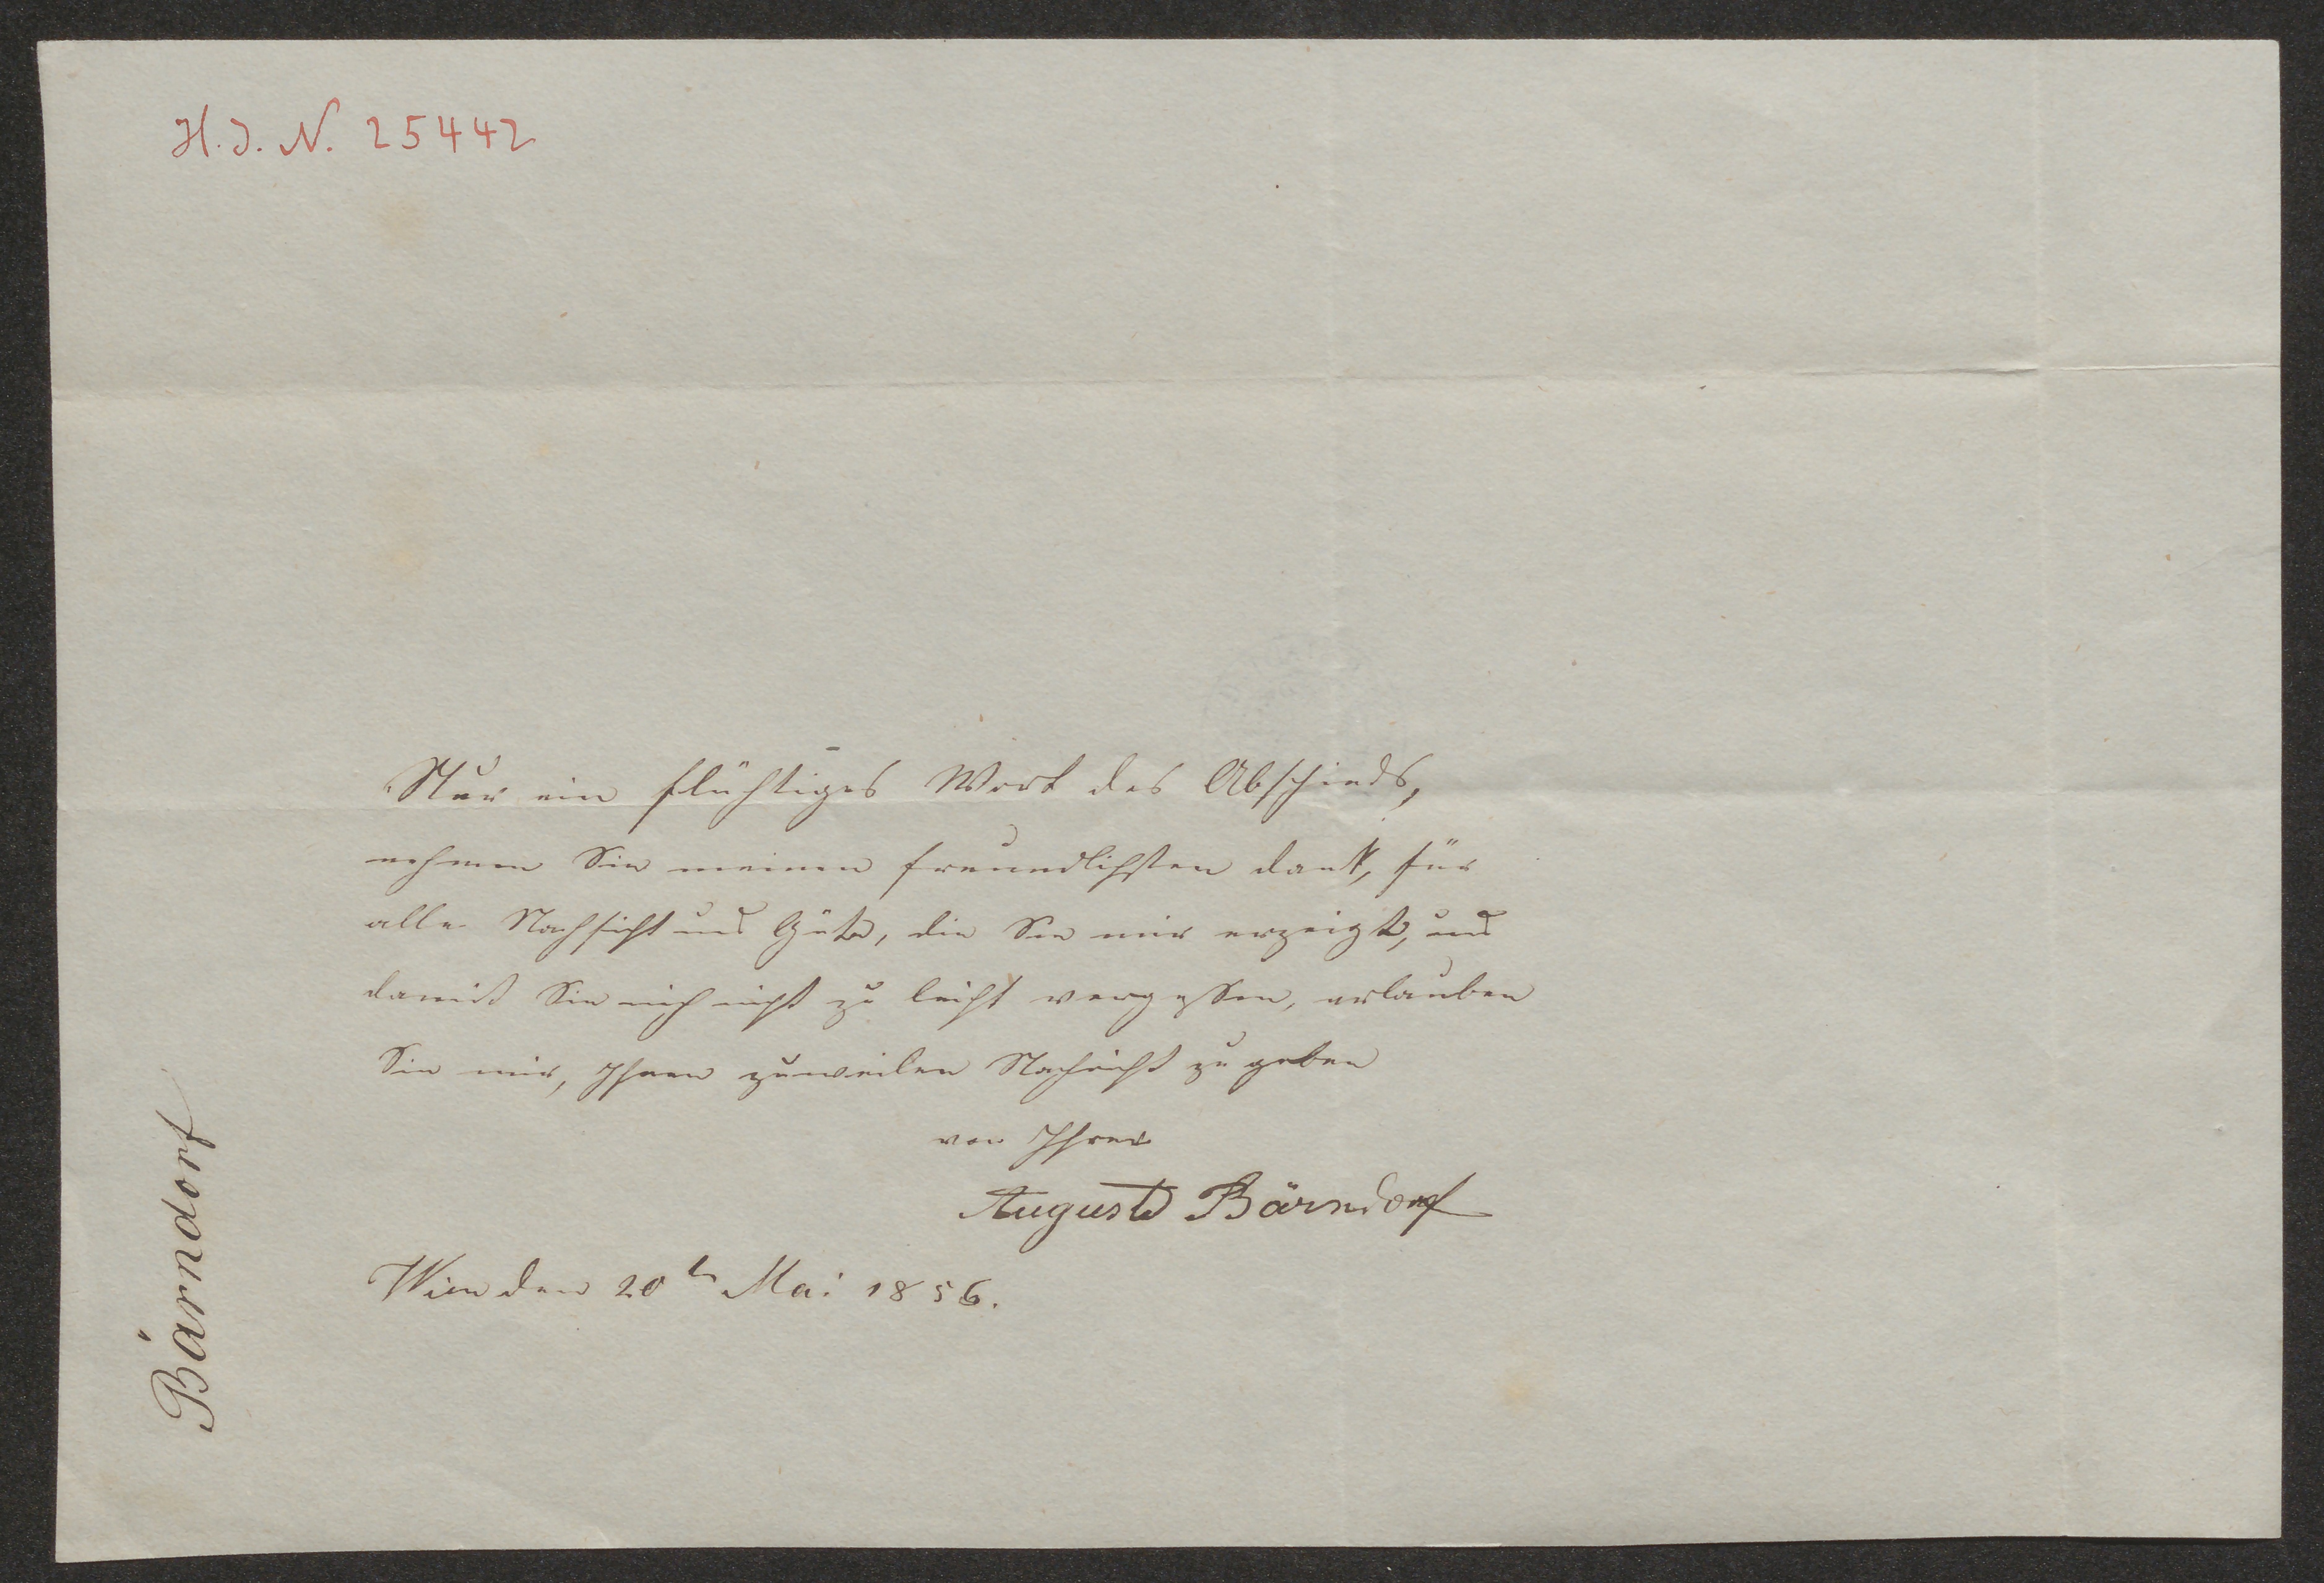 H. J. N. 25442
Nur ein flüchtiges Wort des Abschieds,
nehmen Sie meinen freundlichsten Dank, für
alle Nachsicht und Güte, die Sie mir erzeigt, und
damit Sie mich nicht zu leicht vergessen, erlauben
Sie mir, Ihnen zuweilen Nachricht zu geben
von Ihrer
Auguste Bärndorf
Wien den 20t Mai 1856.
Bärndorf